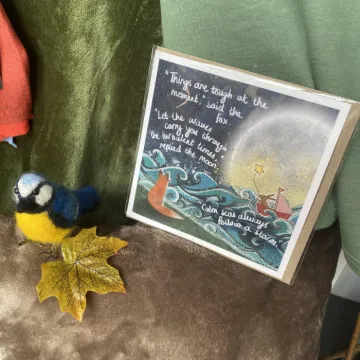 "Things are tough at the
moment," said the
fox.
"Let the waves
carry you through
the turbulent times,"
replied the moon.
"Calm seas always
follow a storm."